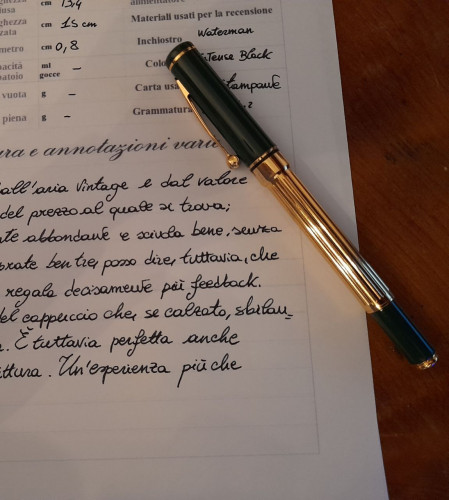 ghezza cm 13,4
usa
ghezza cm 15 cm
zata
metro cm 0,8
acità ml –
patoio gocce
vuota g –
piena g –
alimentatore
Materiali usati per la recensione
Inchiostro Waterman
Colo tense Black
Carta usa stampante
Grammatura
ura e annotazioni vari
dall'aria vintage e dal valore
del prezzo al quale si trova;
te abbondante e scivola bene, senza
ben tre, posso dire, tuttavia, che
regala decisamente più feedback.
del cappuccio che, se calzato, sbilan-
. È tuttavia perfetta anche
ittura. Un'esperienza più che